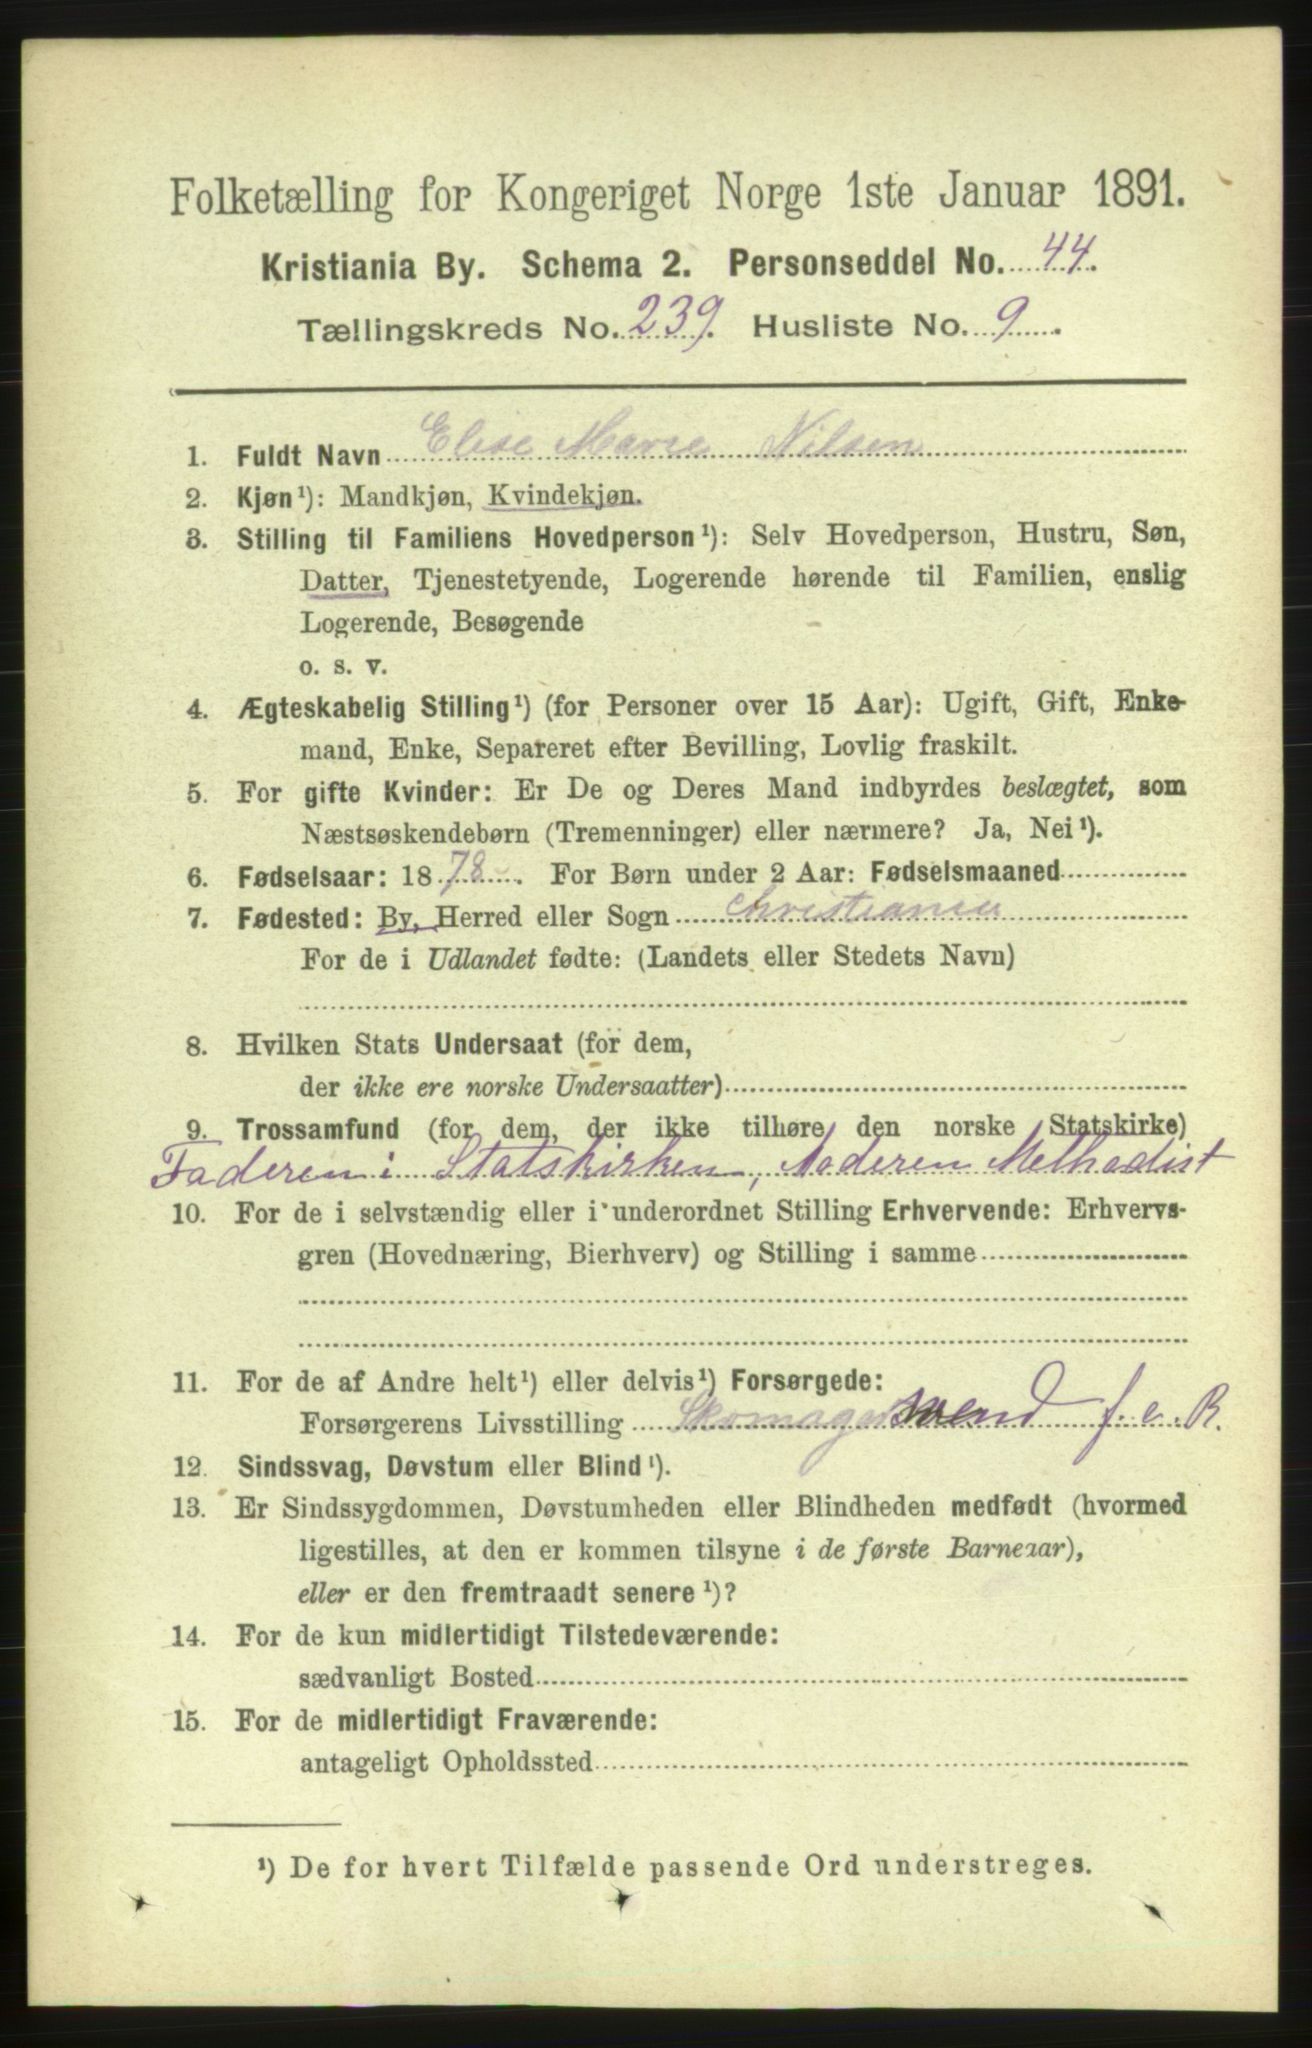 Folketælling for Kongeriget Norge 1ste Januar 1891.
Kristiania By. Schema 2. Personseddel No. 44.
Tællingskreds No. 239. Husliste No. 9.
1. Fuldt Navn Elise Marie Nilsen
2. Kjøn¹): Mandkjøn, Kvindekjøn.
3. Stilling til Familiens Hovedperson¹): Selv Hovedperson, Hustru, Søn,
Datter, Tjenestetyende, Logerende hørende til Familien, enslig
Logerende, Besøgende
o. s. v.
4. Ægteskabelig Stilling¹) (for Personer over 15 Aar): Ugift, Gift, Enke-
mand, Enke, Separeret efter Bevilling, Lovlig fraskilt.
5. For gifte Kvinder: Er De og Deres Mand indbyrdes beslægtet, som
Næstsøskendebørn (Tremenninger) eller nærmere? Ja, Nei¹).
6. Fødselsaar: 1878. For Børn under 2 Aar: Fødselsmaaned
7. Fødested: By, Herred eller Sogn Christiania
For de i Udlandet fødte: (Landets eller Stedets Navn)
8. Hvilken Stats Undersaat (for dem,
der ikke ere norske Undersaatter)
9. Trossamfund (for dem, der ikke tilhøre den norske Statskirke)
Faderen i Statskirken, Moderen Methodist
10. For de i selvstændig eller i underordnet Stilling Erhvervende: Erhvervs-
gren (Hovednæring, Bierhverv) og Stilling i samme
11. For de af Andre helt¹) eller delvis¹) Forsørgede:
Forsørgerens Livsstilling Skomagersvend f. e. R.
12. Sindssvag, Døvstum eller Blind¹).
13. Er Sindssygdommen, Døvstumheden eller Blindheden medfødt (hvormed
ligestilles, at den er kommen tilsyne i de første Barneaar),
eller er den fremtraadt senere¹)?
14. For de kun midlertidigt Tilstedeværende:
sædvanligt Bosted
15. For de midlertidigt Fraværende:
antageligt Opholdssted
¹) De for hvert Tilfælde passende Ord understreges.